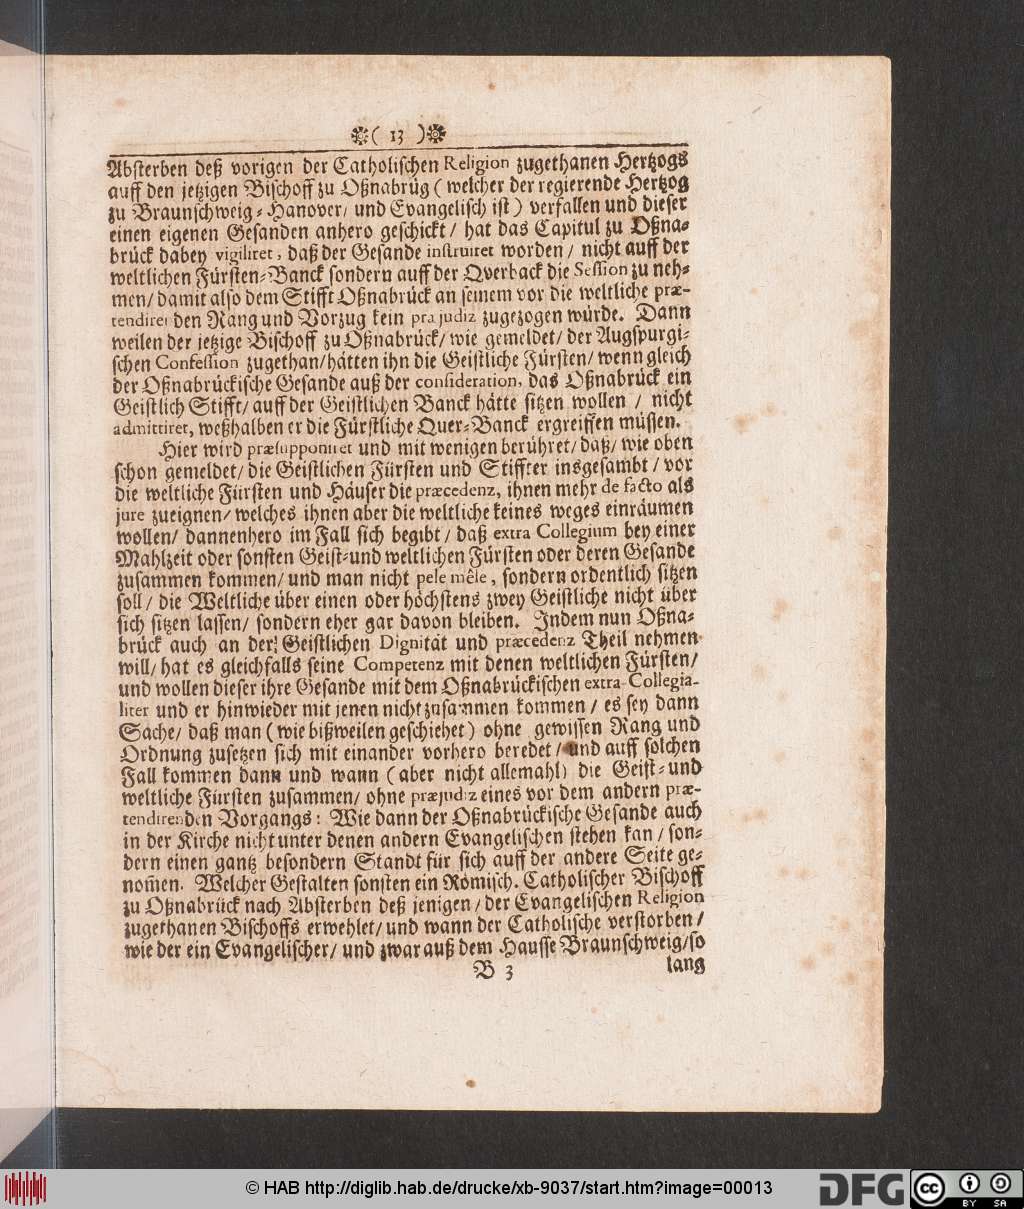 ( 13 )
Absterben deß vorigen der Catholischen Religion zugethanen Hertzogs
auff den jetzigen Bischoff zu Oßnabrüg ( welcher der regierende Hertzog
zu Braunschweig-Hanover/ und Evangelisch ist ) verfallen und dieser
einen eigenen Gesanden anhero geschickt / hat das Capitul zu Oßna-
brück dabey vigiliret, daß der Gesande instruiret worden / nicht auff der
weltlichen Fürsten-Banck sondern auff der Qverback die Session zu neh-
men/ damit also dem Stifft Oßnabrück an seinem vor die weltliche præ-
tendirei den Rang und Vorzug kein præjudiz zugezogen würde. Dann
weilen der jetzige Bischoff zu Oßnabrück/ wie gemeldet/ der Augspurgi-
schen Confession zugethan/ hätten ihn die Geistliche Fürsten/ wenn gleich
der Oßnabrückische Gesande auß der consideration, das Oßnabrück ein
Geistlich Stifft/ auff der Geistlichen Banck hätte sitzen wollen / nicht
admittiret, weßhalben er die Fürstliche Quer-Banck ergreiffen müssen.
Hier wird præsupponiret und mit wenigen berühret/ daß/ wie oben
schon gemeldet/ die Geistlichen Fürsten und Stiffter insgesambt / vor
die weltliche Fürsten und Häuser die præcedenz, ihnen mehr de facto als
jure zueignen/ welches ihnen aber die weltliche keines weges einräumen
wollen/ dannenhero im Fall sich begibt/ daß extra Collegium bey einer
Mahlzeit oder sonsten Geist-und weltlichen Fürsten oder deren Gesande
zusammen kommen/ und man nicht pele mêle, sondern ordentlich sitzen
soll/ die Weltliche über einen oder höchstens zwey Geistliche nicht über
sich sitzen lassen/ sondern eher gar davon bleiben. Indem nun Oßna-
brück auch an der Geistlichen Dignität und præcedenz Theil nehmen
will/ hat es gleichfalls seine Competenz mit denen weltlichen Fürsten/
und wollen dieser ihre Gesande mit dem Oßnabrückischen extra-Collegia-
liter und er hinwieder mit jenen nicht zusammen kommen / es sey dann
Sache/ daß man ( wie bißweilen geschiehet ) ohne gewissen Rang und
Ordnung zusetzen sich mit einander vorhero beredet / und auff solchen
Fall kommen dann und wann ( aber nicht allemahl) die Geist-und
weltliche Fürsten zusammen/ ohne præjudiz eines vor dem andern præ-
tendirenden Vorgangs: Wie dann der Oßnabrückische Gesande auch
in der Kirche nicht unter denen andern Evangelischen stehen kan / son-
dern einen gantz besondern Standt für sich auff der andere Seite ge-
nom̃en. Welcher Gestalten sonsten ein Römisch. Catholischer Bischoff
zu Oßnabrück nach Absterben deß jenigen / der Evangelischen Religion
zugethanen Bischoffs erwehlet/ und wann der Catholische verstorben/
wie der ein Evangelischer/ und zwar auß dem Hausse Braunschweig/ so
B 3 lang
© HAB http://diglib.hab.de/drucke/xb-9037/start.htm?image=00013
DFG
cc
BY SA